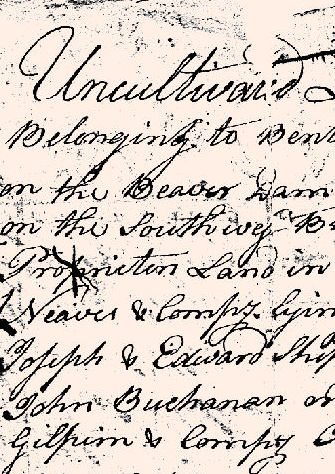 Uncultivaied
Belonging to Benj
on the Beaver Dam
on the Southwey
Proprietors Land in
Neaves & Compy. Lyin
Joseph & Edward Ship
John Buchanan on
Gilpin & Compy